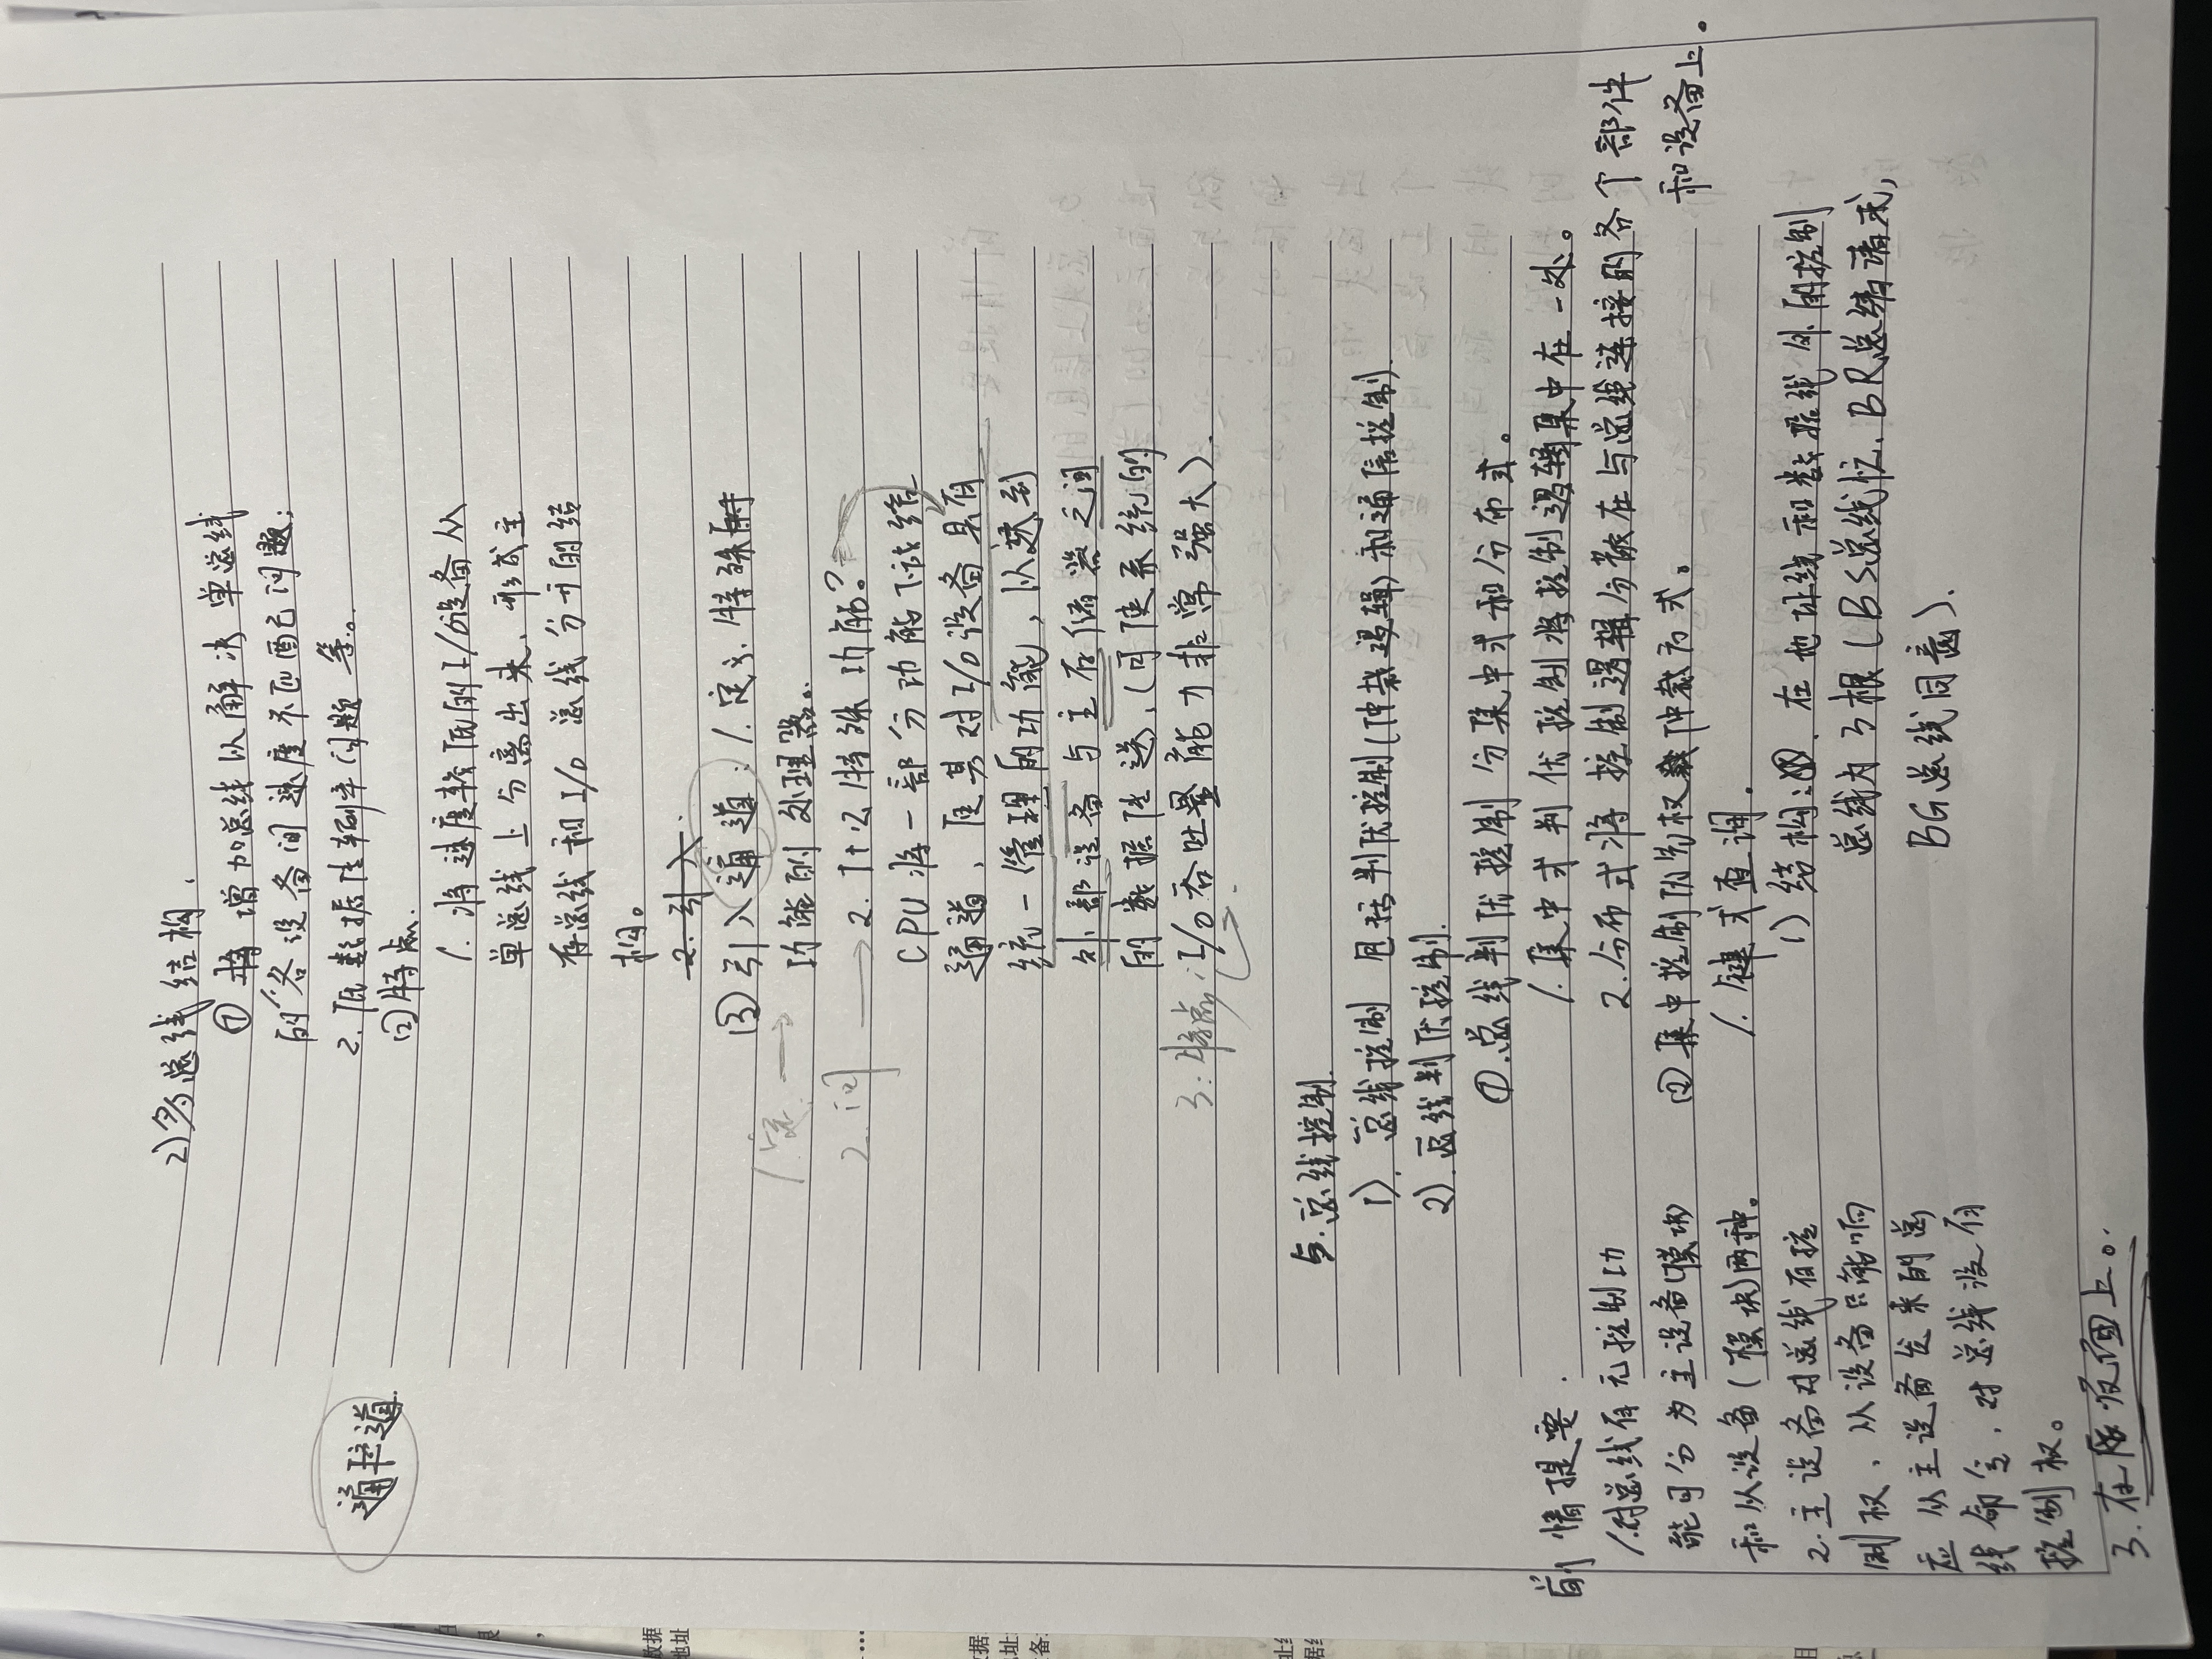 2) 多总线结构.
① 将增加总线以解决单总线
的 1.各设备间速度不匹配问题;
2. 低数据传输率问题 等。
② 特点.
1. 将速度较低的I/O设备从
单总线上分离出来, 形成主
存总线和I/O 总线分开的结
构。
2. 引入.
③ 引入通道: 1. 定义. 特殊
功能的处理器。
2. 什么特殊功能?
CPU将一部分功能下放给
通道, 使其对I/O设备具有
统一管理的功能, 以达到
外部设备与主存储器之间
的数据传送, (可使系统的
I/O吞吐量能力非常强大).
通道
1. 定 →
2. 问 →
3. 特点:
5. 总线控制.
1). 总线控制 包括判优控制(仲裁逻辑)和通信控制).
2). 总线判优控制.
①. 总线判优控制 分集中式和分布式。
1. 集中式判优控制将控制逻辑集中在一处。
2. 分布式将控制逻辑分散在与总线连接的各个部件
和设备上。
② 集中控制优先权仲裁方式。
1. 键式查询。
1) 结构: 在地址线和数据线外的控制
总线为3根 (BS总线忙. BR总线请求,
BG总线同意).
前情提要.
1.对总线有无控制功
能可分为主设备(模块)
和从设备(模块)两种。
2.主设备对总线有控
制权, 从设备只能响
应从主设备发来的总
线命令, 对总线没有
控制权。
3. 在后页面上。